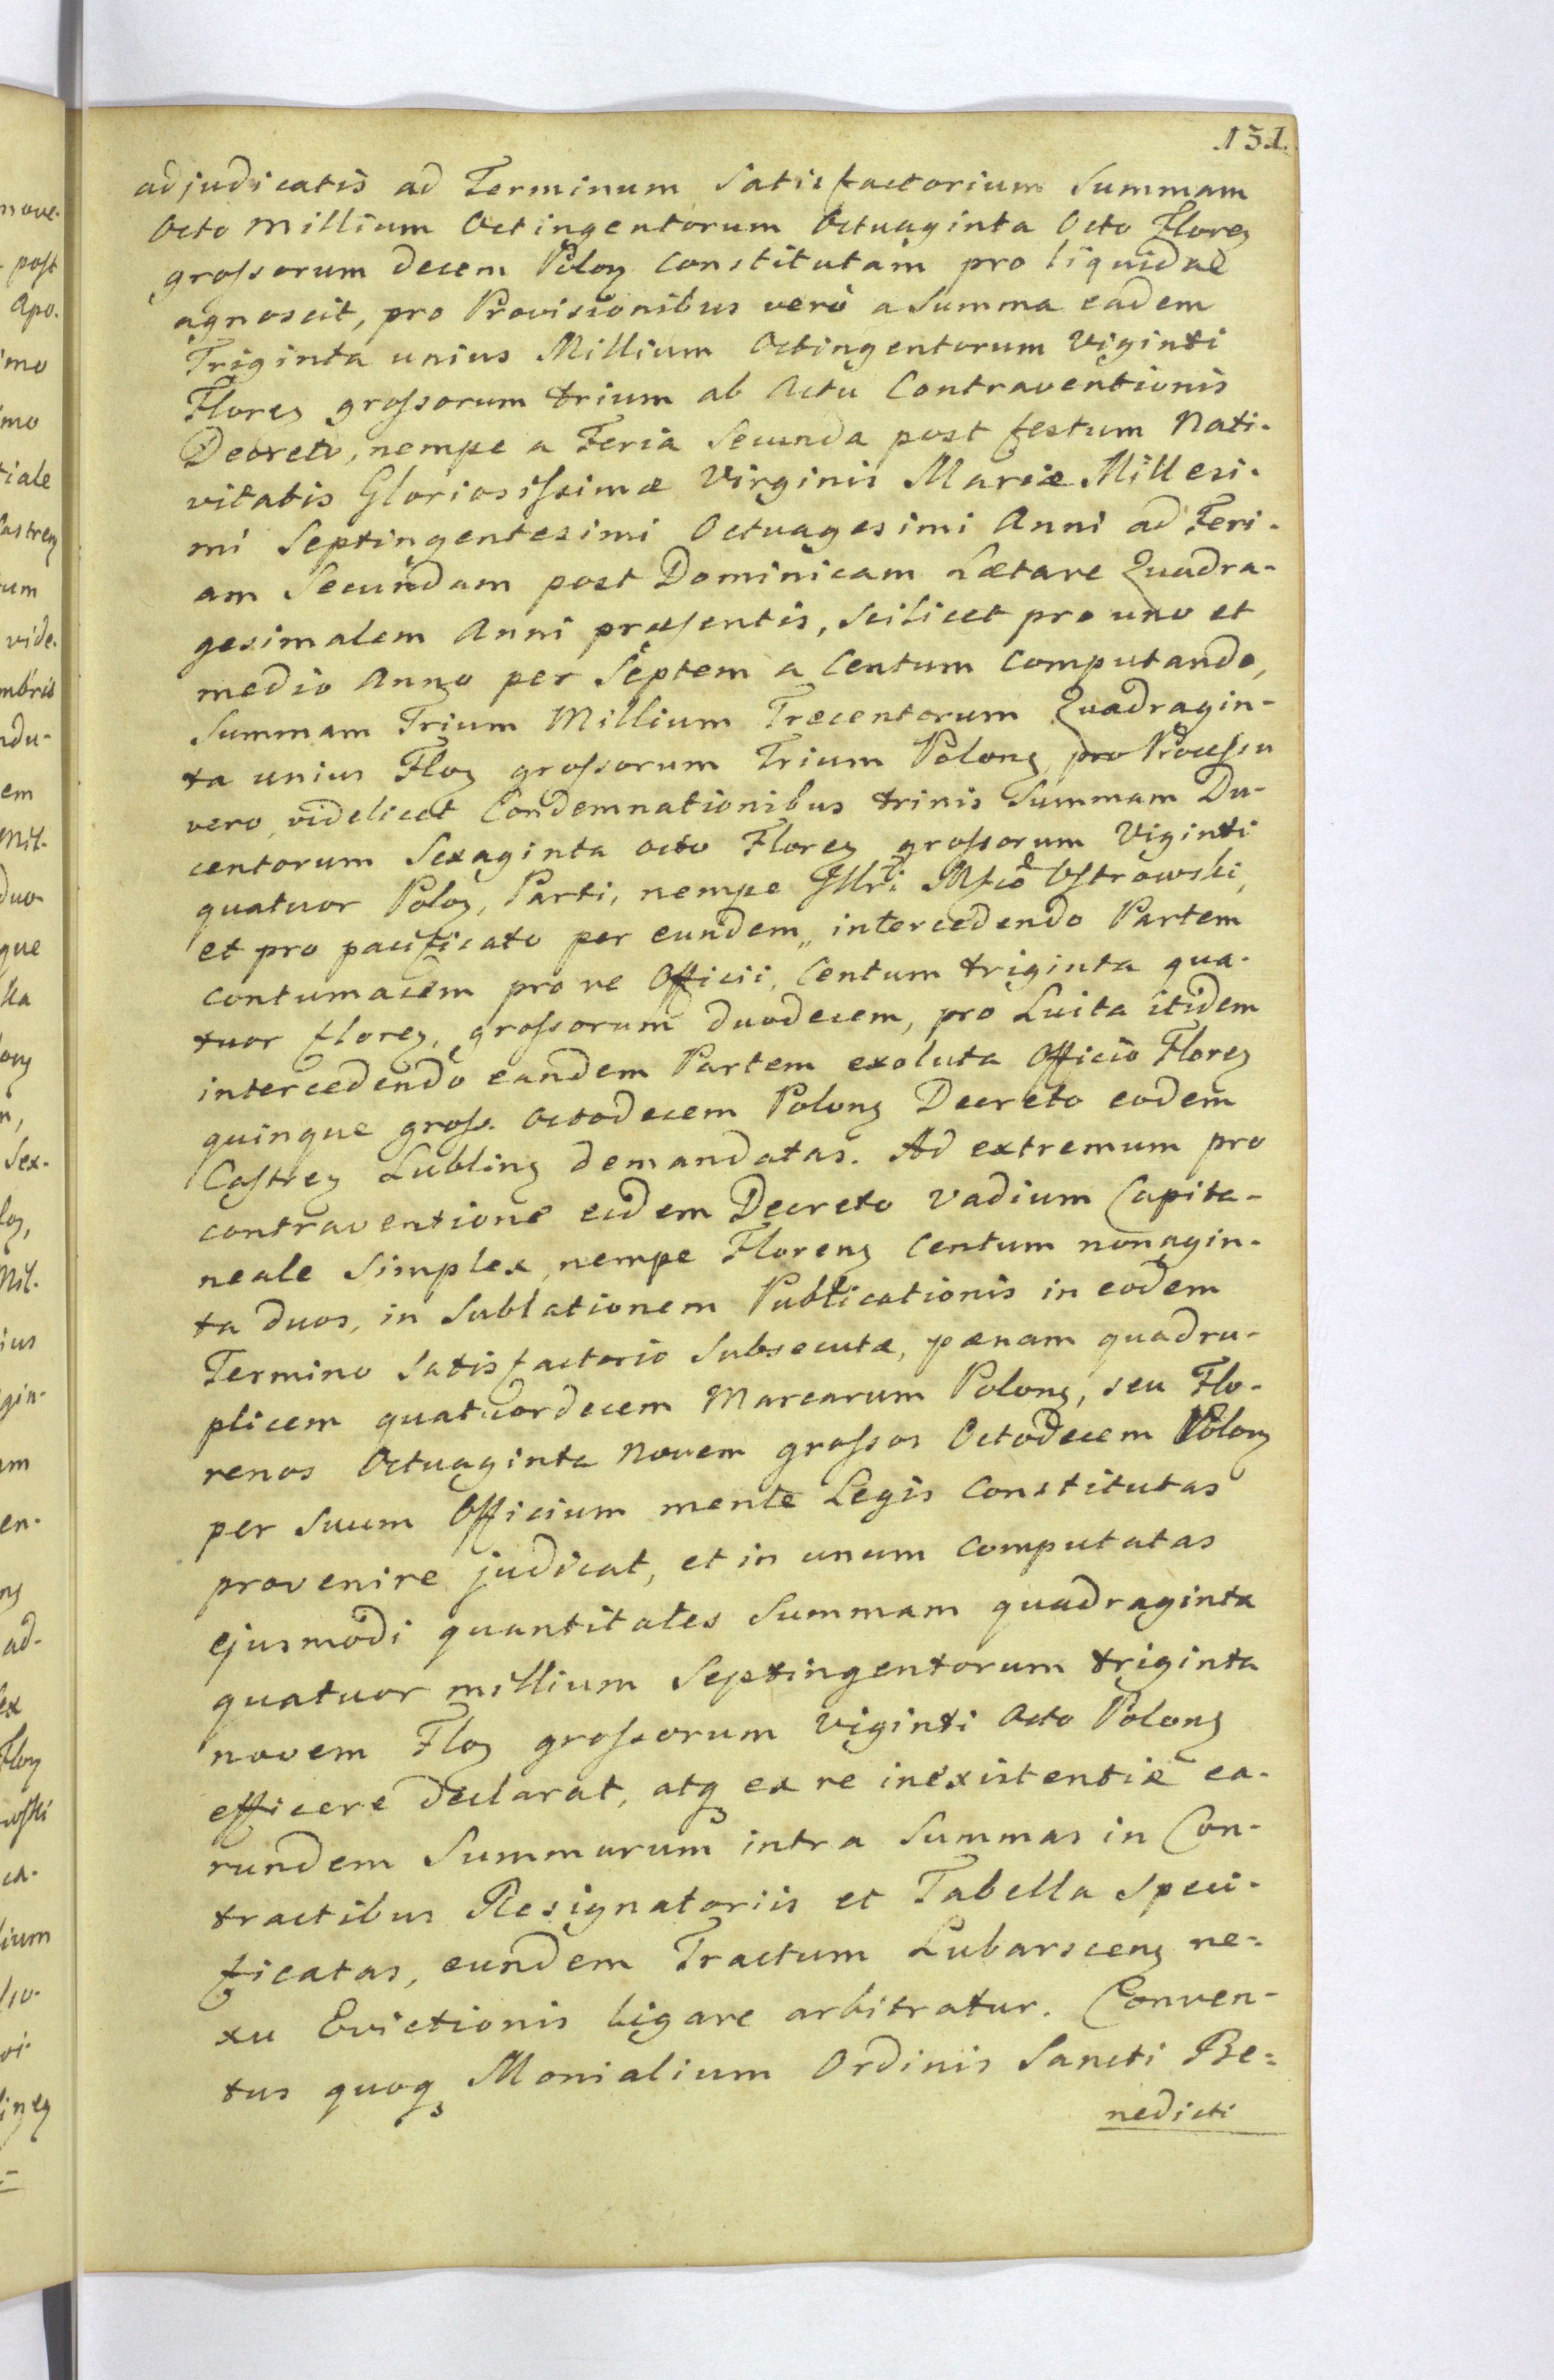 131.
adjudicatis ad Terminum Satisfactorium Summam
Octo Millium Octingentorum Octuaginta Octo Floreg
grossorum decem Polog Constitutam pro liquidae
agnoscit, pro Provisionibus verò a Summa eadem
Triginta unius Millium Octingentorum Viginti
Floreg grossorum trium ab Actu Contraventionis
Decreti, nempe a Feria Secunda post festum Nati-
vitatis Gloriosissimæ Virginis Mariæ Millesi-
mi Septingentesimi Octuagesimi Anni ad Feri-
am Secundam post Dominicam Lætare Quadra-
gesimalem Anni præsentis, Scilicet pro uno et
medio Anno per Septem a Centum Computando,
Summam Trium Millium Trecentorum Quadragin-
ta unius Flog grossorum Trium Polong, pro Processu
vero, videlicet Condemnationibus trinis Summam Du-
centorum Sexaginta octo Floreg grossorum Viginti
quatuor Polog, Parti, nempe Illri Mfco Ostrowski,
et pro pacificato per eundem, intercedendo Partem
Contumacem pro re Officii, Centum triginta qua-
tuor floreg, grossorum duodecem, pro Luita itidem
intercedendo eandem Partem exoluta Officio Floreg
quinque gross. Octodecem Polong Decreto eodem
Castreg Lubling demandatas. Ad extremum pro
contraventione eidem Decreto Vadium Capita-
neale Simplex, nempe Floreng Centum nonagin-
ta duos, in Sublationem Publicationis in eodem
Termino Satisfactorio Subsecutæ, pænam quadru-
plicem quatuordecem Marcarum Polong, seu Flo-
renos Octuaginta Novem grossos Octodecem Polong
per Suum Officium mente Legis Constitutas
provenire judicat, et in unum Computatas
ejusmodi quantitates Summam quadraginta
quatuor millium Septingentorum triginta
novem Flog grossorum Viginti Octo Polong
efficere declarat, atq ex re inexistentiæ ea-
rundem Summarum intra Summas in Con-
tractibus Resignatoriis et Tabella Speci-
ficatas, eundem Tractum Lubarsceng ne-
xu Evictionis ligare arbitratur. Conven-
tus quoq Monialium Ordinis Sancti Be=
nedicti